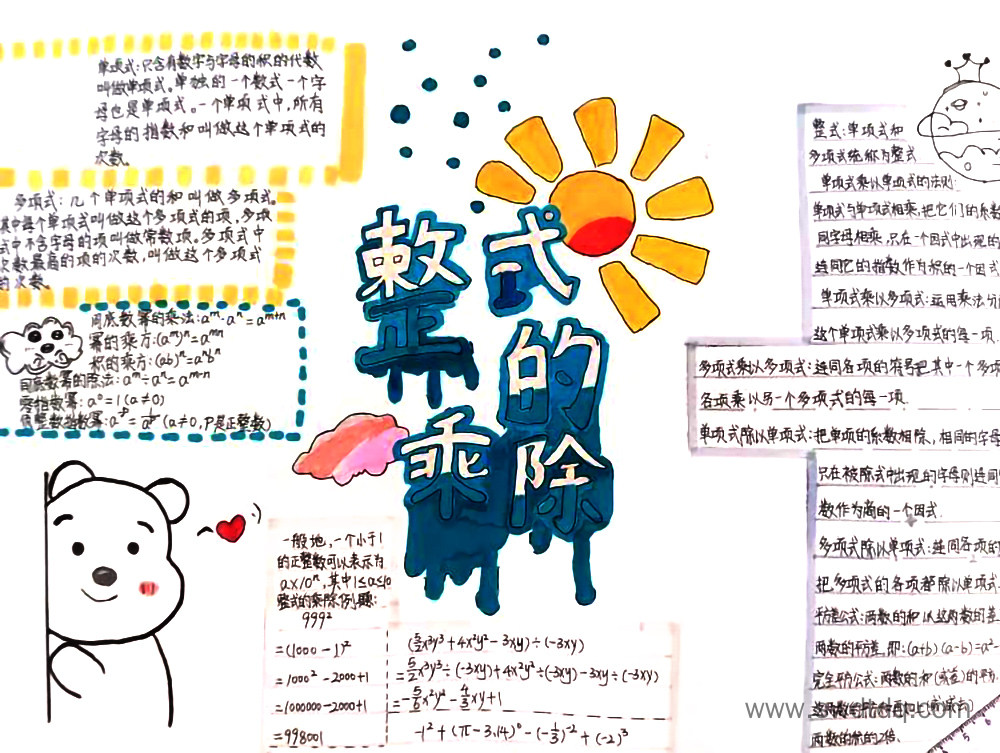 单项式:只含有数字与字母的积的代数
叫做单项式。单独的一个数式一个字
母也是单项式。一个单项式中,所有
字母的指数和叫做这个单项式的
次数。
多项式:几个单项式的和叫做多项式。
其中每个单项式叫做这个多项式的项,多项
式中不含字母的项叫做常数项。多项式中
次数最高的项的次数,叫做这个多项式
的次数。
同底数幂的乘法:aᵐ·aⁿ=aᵐ⁺ⁿ
幂的乘方:(aᵐ)ⁿ=aᵐⁿ
积的乘方:(ab)ⁿ=aⁿbⁿ
同底数幂的除法:aᵐ÷aⁿ=aᵐ⁻ⁿ
零指数幂:a⁰=1(a≠0)
负整数指数幂:a⁻ᵖ=1/aᵖ(a≠0,P是正整数)
整式的
乘除
一般地,一个小于1
的正整数可以表示为
a×10ⁿ,其中1≤a≤10
整式的乘除例题:
999²
=(1000-1)²
=1000²-2000+1
=1000000-2000+1
=998001
(5/2x³y³+4x²y²-3xy)÷(-3xy)
=5/2x³y³÷(-3xy)+4x²y²÷(-3xy)-3xy÷(-3xy)
=-5/6x²y²-4/3xy+1
-1²+(π-3.14)⁰-(-1/3)⁻²+(-2)³
整式:单项式和
多项式统称为整式
单项式乘以单项式的法则:
单项式与单项式相乘,把它们的系数
同字母相乘,只在一个因式中出现的
连同它的指数作为积的一个因式
单项式乘以多项式:运用乘法分
这个单项式乘以多项式的每一项.
多项式乘以多项式:连同各项的符号把其中一个多项
各项乘以另一个多项式的每一项.
单项式除以单项式:把单项的系数相除,相同的字母
只在被除式中出现的字母则连同
数作为商的一个因式.
多项式除以单项式:连同各项的
把多项式的各项都除以单项式.
平差公式:两数的和以这两数的差
两数的平差.即:(a+b)(a-b)=a²-
完全平方公式:两数的和(或差)的平方.
两数的积的2倍.